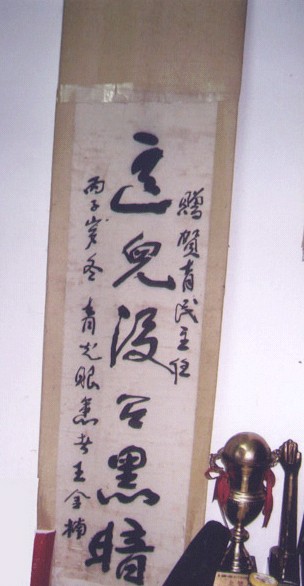 贈賀青民主任
這兒没有黑暗
丙子岁冬 青光眼患者王金楠